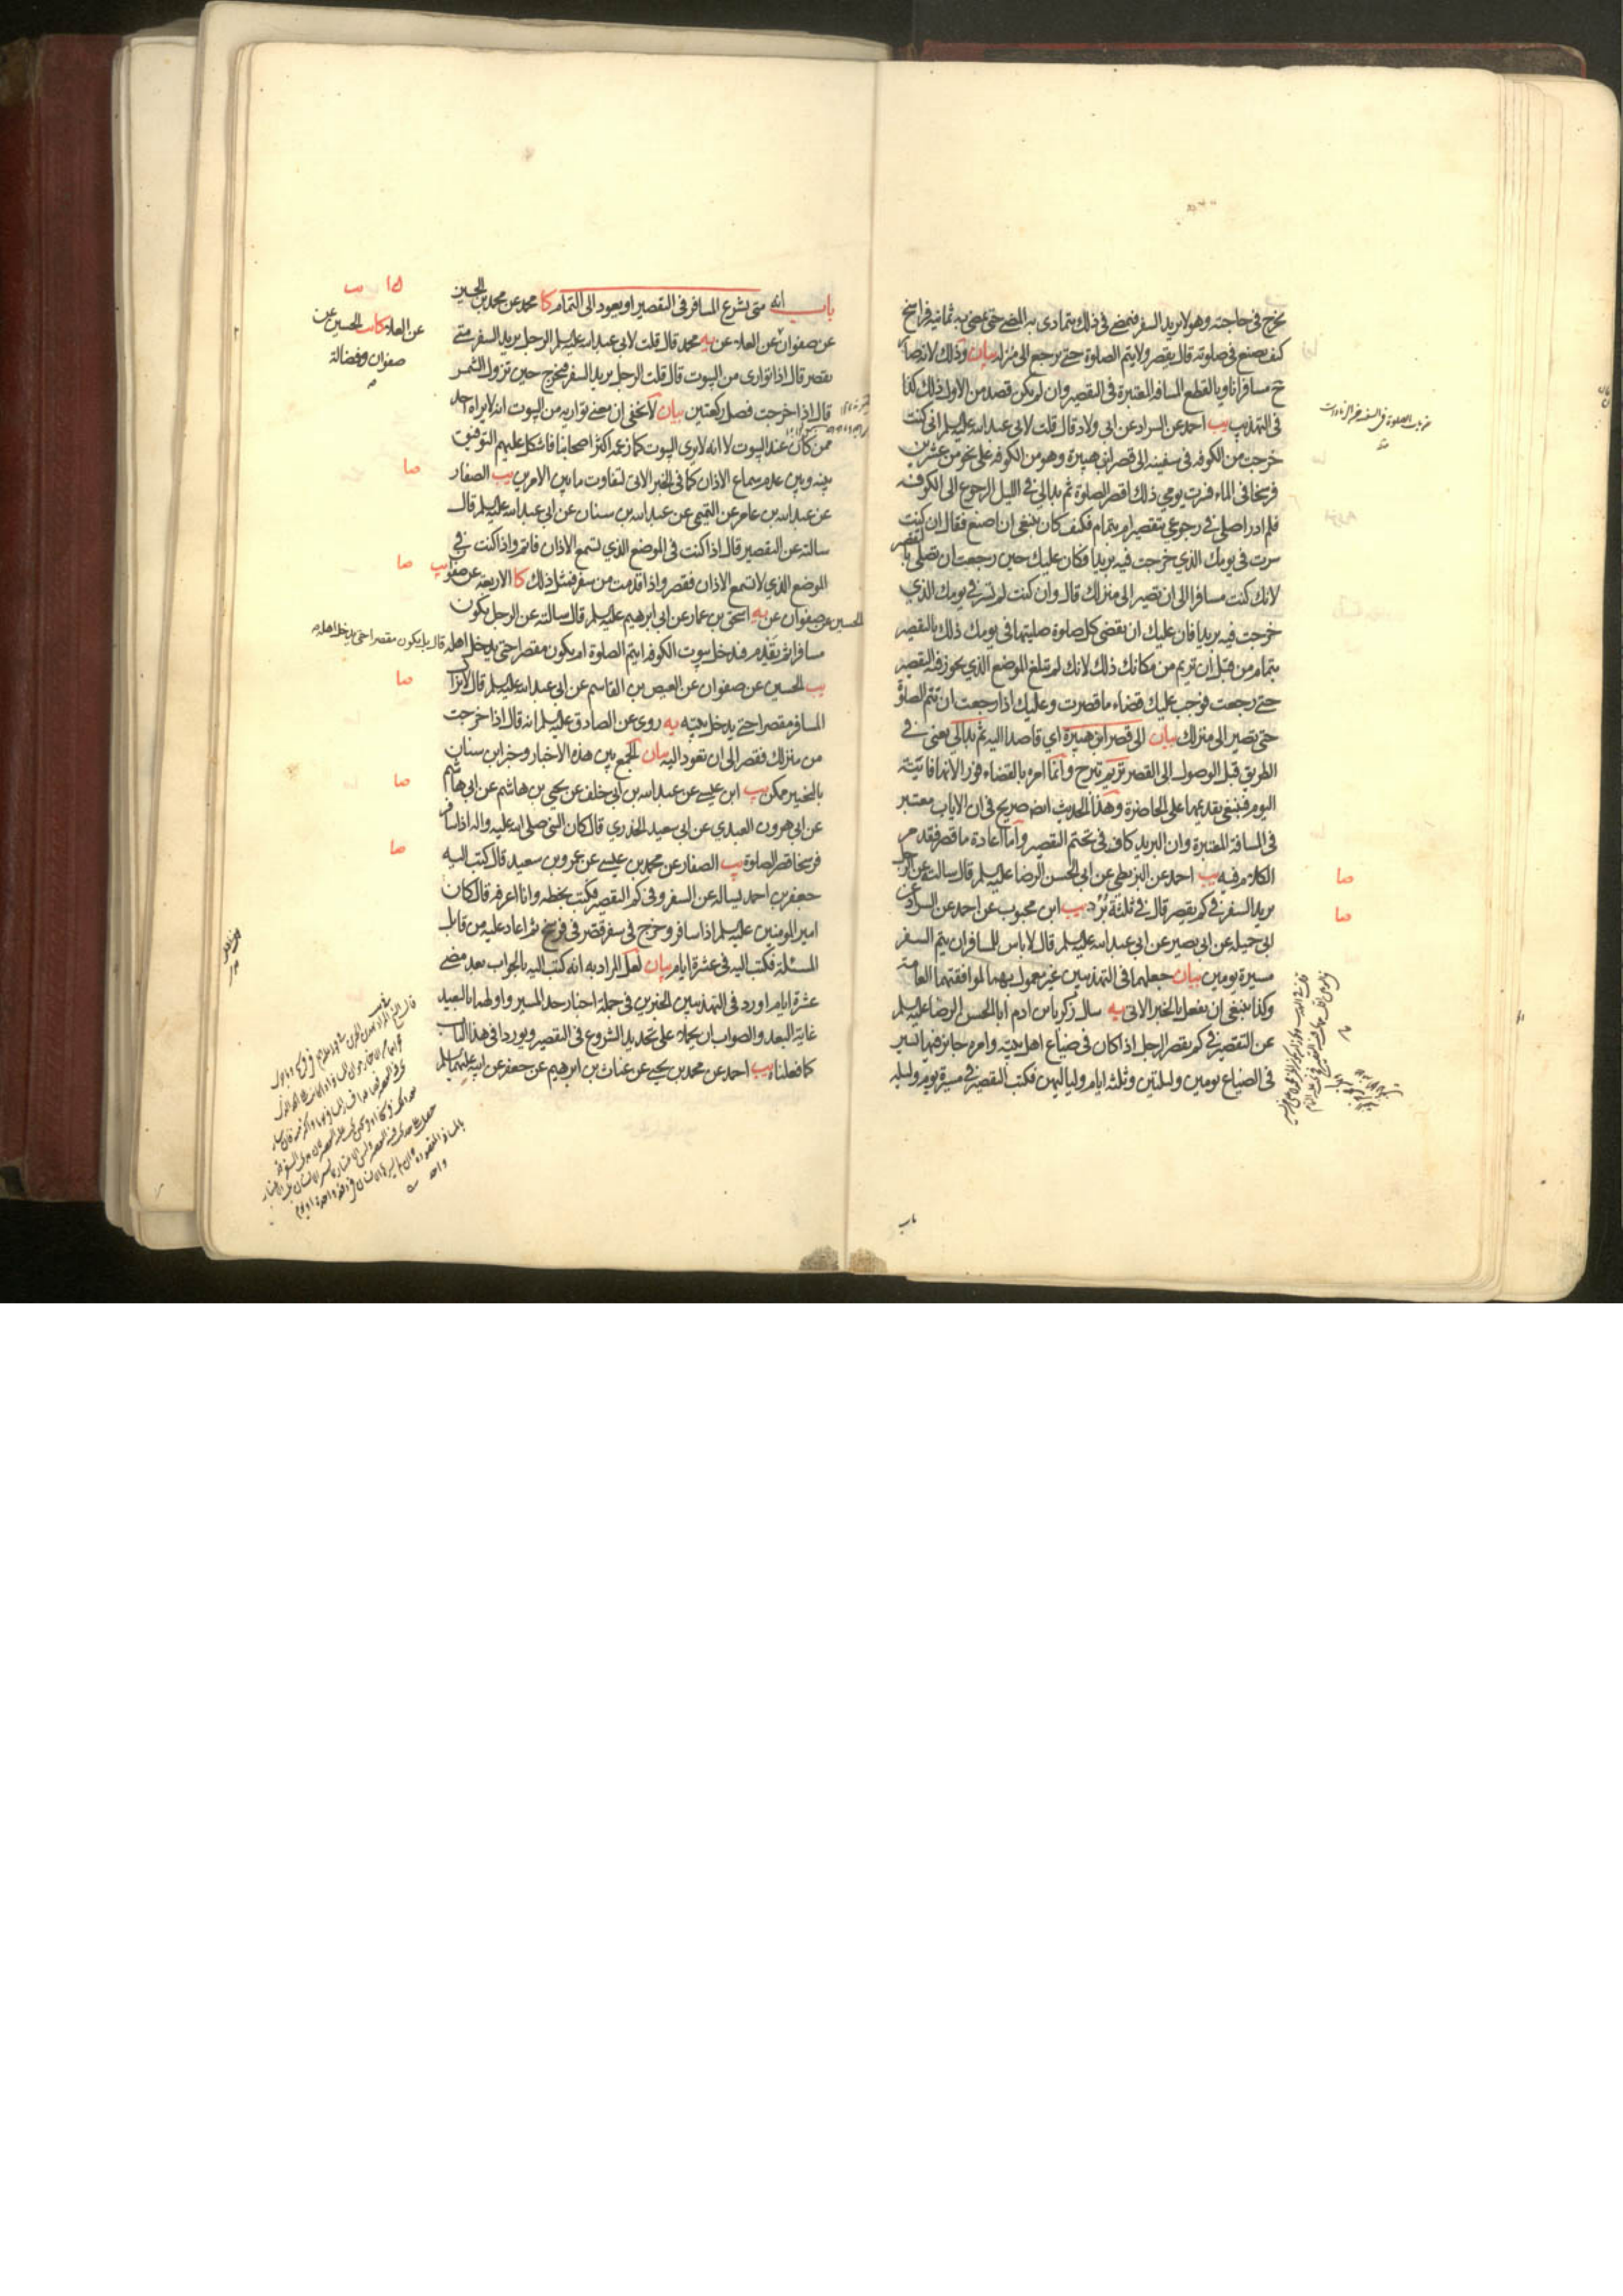 يخرج في حاجته وهو لا يريد السفر فيمضي في ذلك يتمادى به المضي حتى يمضي به ثمانية فراسخ
كيف يصنع في صلوته قال يقصر ولا يتم الصلوة حتى يرجع الى منزله بيان وذلك لانه صار
ح مسافرا ناويا لقطع المسافة المعتبرة في التقصير وان لم يكن قصد من الاول ذلك كذا
في التهذيب يب احمد عن السراد عن ابي ولاد قال قلت لابي عبد الله عليه السلم اني كنت
خرجت من الكوفه في سفينه الى قصر ابن هبيرة وهو من الكوفه على نحو من عشرين
فرسخا في الماء فسرت يومي ذلك اقصر الصلوة ثم بدا لي في الليل الرجوع الى الكوفه
فلم ادر اصلي في رجوعي بتقصير ام بتمام فكيف كان ينبغي ان اصنع فقال ان كنت
سرت في يومك الذي خرجت فيه بريدا فكان عليك حين رجعت ان تصلي بالتقصير
لانك كنت مسافرا الى ان تصير الى منزلك قال وان كنت لم تسر في يومك الذي
خرجت فيه بريدا فان عليك ان تقضي كل صلوة صليتها في يومك ذلك بالتقصير
بتمام من قبل ان تريم من مكانك ذلك لانك لم تبلغ الموضع الذي يجوز فيه التقصير
حتى رجعت فوجب عليك قضاء ما قصرت وعليك اذا رجعت ان تتم الصلوة
حتى تصير الى منزلك بيان الى قصر ابن هبيرة اي قاصدا اليه ثم بدا لي يعني في
الطريق قبل الوصول الى القصر تريم تبرح وانما امره بالقضاء فورا لانها فائتة
اليوم فينبغي تقديمها على الحاضرة وهذا الحديث ايض صريح في ان الاياب معتبر
في المسافة المعتبرة وان البريد كاف في تحتم التقصير واما اعادة ما قصر فقد مر
الكلام فيه يب احمد عن البزنطي عن ابي الحسن الرضا عليه السلم قال سالته عن الرجل
يريد السفر في كم يقصر قال في ثلثة برد يب ابن محبوب عن احمد عن السراد عن
ابي جميله عن ابي بصير عن ابي عبد الله عليه السلم قال لا باس للمسافر ان يتم السفر
مسيرة يومين بيان جعلهما في التهذيبين غير معمول بهما لموافقتهما العامة
وكذا ينبغي ان يفعل بالخبر الاتي يه سال زكريا بن ادم ابا الحسن الرضا عليه السلم
عن التقصير في كم يقصر الرجل اذا كان في ضياع اهل بيته وامره جايز فيها يسير
في الضياع يومين وليلتين وثلثة ايام ولياليهن فكتب التقصير في مسيرة يوم وليله
صا
صا
باب
باب انه متى يشرع المسافر في التقصير او يعود الى التمام كا محمد عن محمد بن الحسين
عن صفوان عن العلا عن يه محمد قال قلت لابي عبد الله عليه السلم الرجل يريد السفر متى
يقصر قال اذا توارى من البيوت قال قلت الرجل يريد السفر فيخرج حين تزول الشمس
قال اذا خرجت فصل ركعتين بيان لا يخفى ان معنى تواريه من البيوت انه لا يراه احد
ممن كان عند البيوت لا انه لا يرى البيوت كما زعمه اكثر اصحابنا فاشكل عليهم التوفيق
بينه وبين عدم سماع الاذان كما في الخبر الاتي لتفاوت ما بين الامرين يب الصفار
عن عبد الله بن عامر عن التميمي عن عبد الله بن سنان عن ابي عبد الله عليه السلم قال
سالته عن التقصير قال اذا كنت في الموضع الذي تسمع الاذان فاتم واذا كنت في
الموضع الذي لا تسمع الاذان فقصر واذا قدمت من سفر فمثل ذلك كا الاربعة عن صفوان يب
الحسين عن صفوان عن يه اسحق بن عمار عن ابي ابرهيم عليه السلم قال سالته عن الرجل يكون
مسافرا ثم يقدم فيدخل بيوت الكوفه ايتم الصلوة ام يكون مقصرا حتى يدخل اهله قال بل يكون مقصرا حتى يدخل اهله
يب الحسين عن صفوان عن العيص بن القاسم عن ابي عبد الله عليه السلم قال لا يزال
المسافر مقصرا حتى يدخل بيته يه روي عن الصادق عليه السلم انه قال اذا خرجت
من منزلك فقصر الى ان تعود اليه بيان الجمع بين هذه الاخبار وخبر ابن سنان
بالتخيير ممكن يب ابن عيسى عن عبد الله بن ابي خلف عن يحيى بن هاشم عن ابي هاشم
عن ابي هرون العبدي عن ابي سعيد الخدري قال كان النبي صلى الله عليه واله اذا سافر
فرسخا قصر الصلوة يب الصفار عن محمد بن عيسى عن عمرو بن سعيد قال كتب اليه
جعفر بن احمد يساله عن السفر وفي كم التقصير فكتب بخطه وانا اعرفه قال كان
امير المومنين عليه السلم اذا سافر وخرج في سفر قصر في فرسخ ثم اعاد عليه من قابل
المسئلة فكتب اليه في عشرة ايام بيان لعل المراد به انه كتب اليه بالجواب بعد مضي
عشرة ايام اورد في التهذيبين الخبرين في جملة اخبار حد المسير واولهما بالبعيد
غاية البعد والصواب ان يحملا على تحديد الشروع في التقصير ويوردا في هذا الباب
كما فعلناه يب احمد عن محمد بن يحيى عن غياث بن ابرهيم عن جعفر عن ابيه عليهما السلم
عن العلا كا يب الحسين عن
صفوان وفضالة
صا
صا
صا
صا
صا